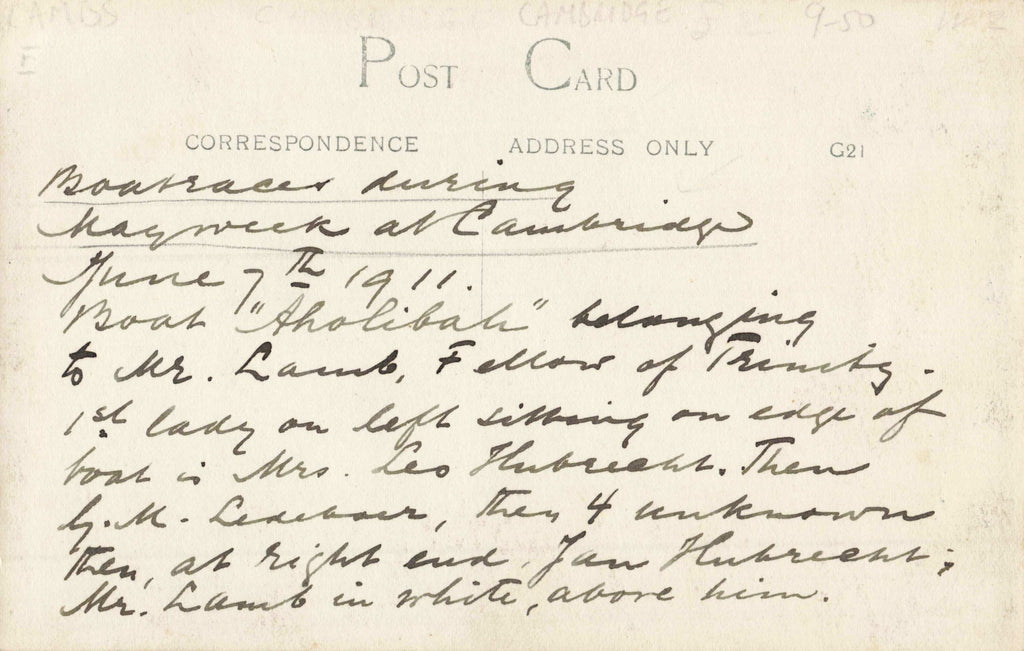 CAMBRIDGE 9-50
POST CARD
CORRESPONDENCE ADDRESS ONLY G21
Boatraces during
Mayweek at Cambridge
June 7th 1911.
Boat "Aholibah" belonging
to Mr. Lamb, Fellow of Trinity.
1st lady on left sitting on edge of
boat is Mrs. Leo Hubrecht. Then
M. Ledeboer, then 4 unknown
then, at right end, Jan Hubrecht;
Mr. Lamb in white, above him.